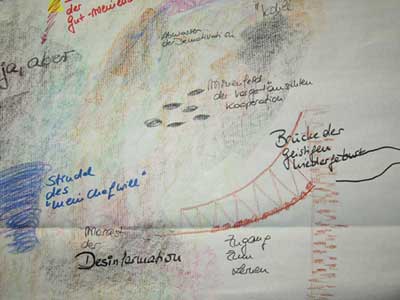 der
gut-meinend
Abwasser
der Demotivation
ja, aber
Minenfeld
der vorgetäuschten
Kooperation
Brücke der
geistigen
Wiedergeburt
Strudel
des
"mein Chef will"
Morast
der
Desinformation
Zugang
zum
Lernen